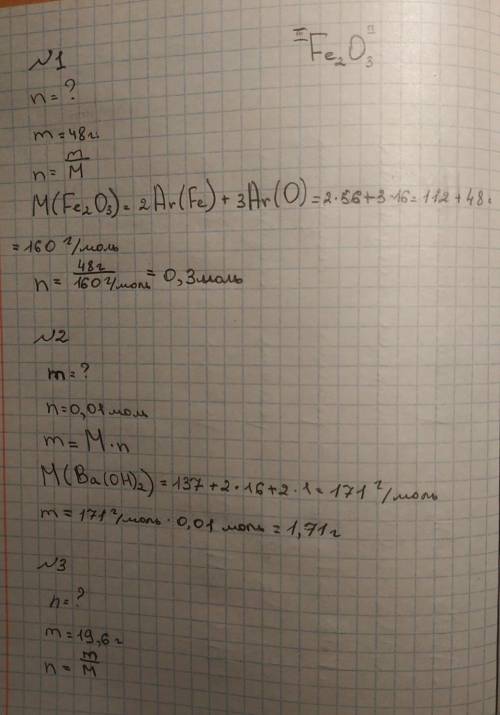 III II
Fe₂O₃
№1
n = ?
m = 48г.
n = m/M
M(Fe₂O₃) = 2Ar(Fe) + 3Ar(O) = 2·56 + 3·16 = 112 + 48 =
= 160 г/моль
n = 48г/160 г/моль = 0,3 моль
№2
m = ?
n = 0,01 моль
m = M·n
M(Ba(OH)₂) = 137 + 2·16 + 2·1 = 171 г/моль
m = 171 г/моль · 0,01 моль = 1,71 г
№3
n = ?
m = 19,6 г
n = m/M